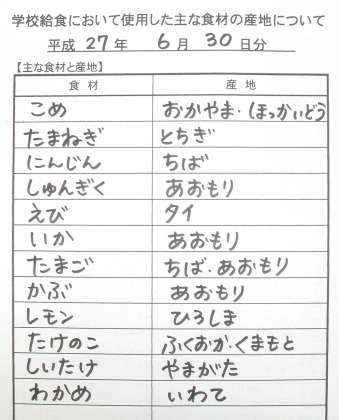 学校給食において使用した主な食材の産地について
平成 27 年 6 月 30 日分
【主な食材と産地】
食材 産地
こめ おかやま・ほっかいどう
たまねぎ とちぎ
にんじん ちば
しゅんぎく あおもり
えび タイ
いか あおもり
たまご ちば・あおもり
かぶ あおもり
レモン ひろしま
たけのこ ふくおか・くまもと
しいたけ やまがた
わかめ いわて